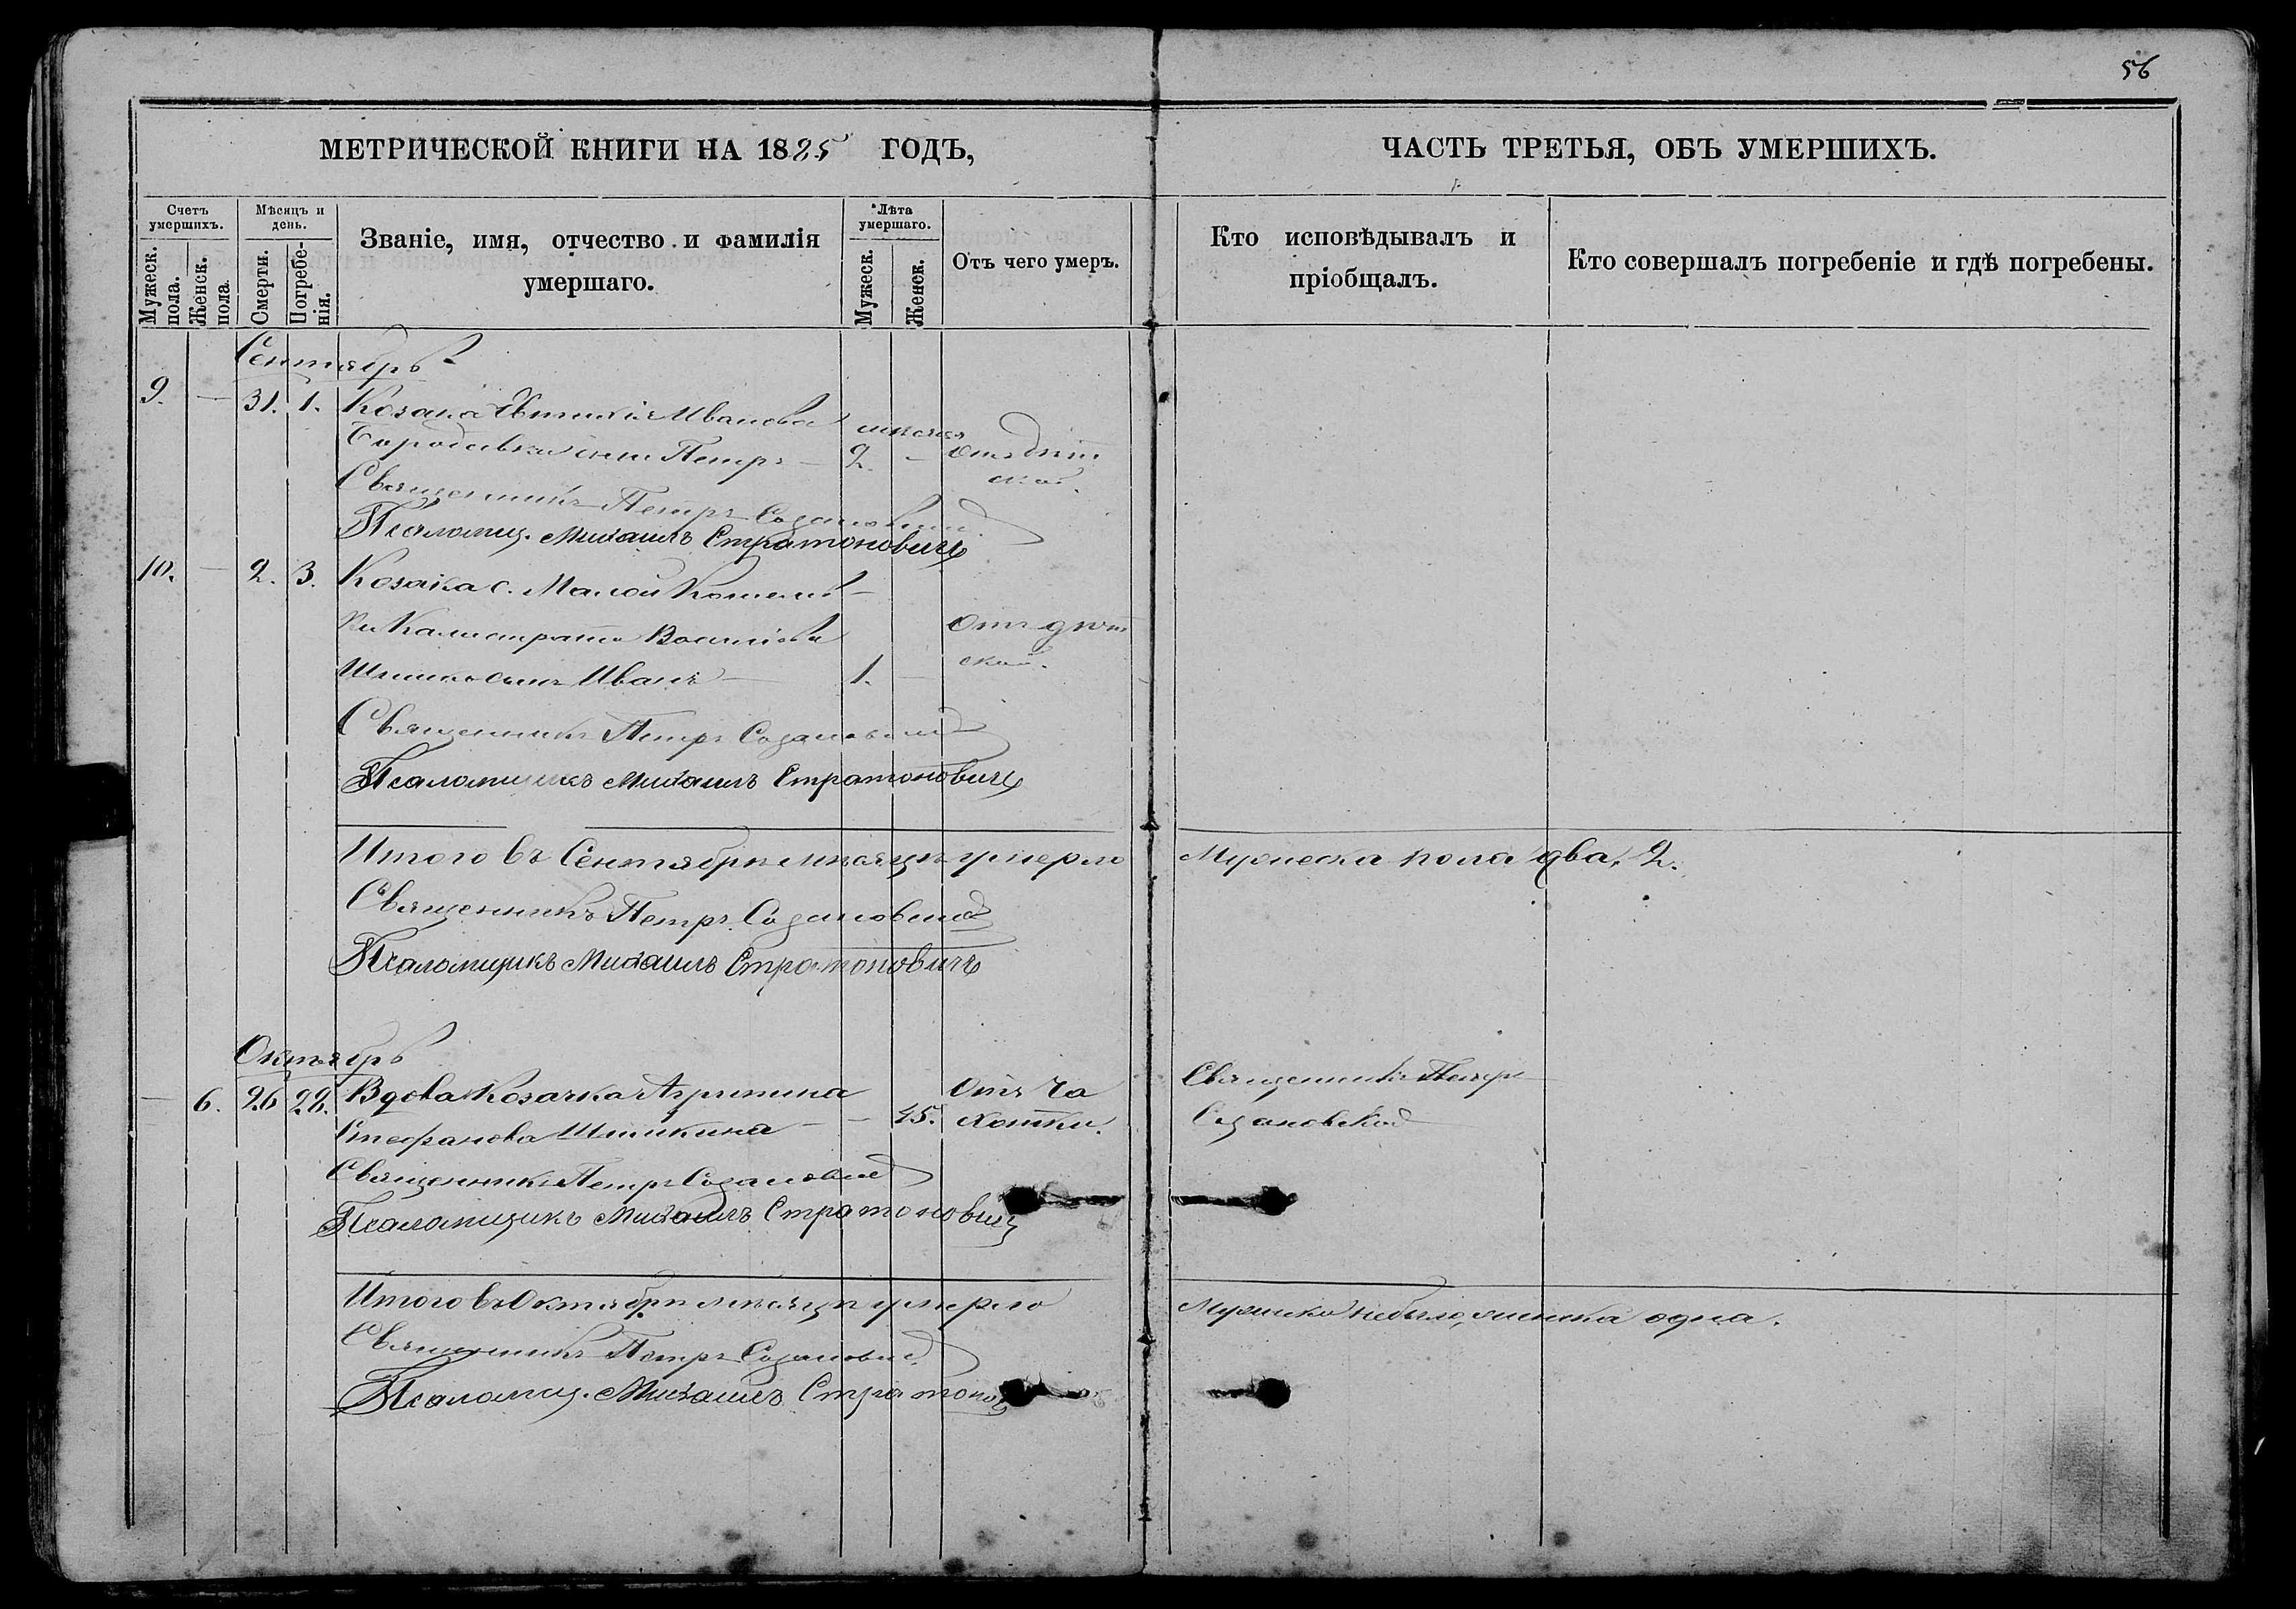 56
МЕТРИЧЕСКОЙ КНИГИ НА 1885 ГОДЪ,
ЧАСТЬ ТРЕТЬЯ, ОБЪ УМЕРШИХЪ.
Счетъ умершихъ.
Мужеск. пола.
Женск. пола.
Мѣсяцъ и день.
Смерти.
Погребенія.
Званіе, имя, отчество и фамилія
умершаго.
Лѣта умершаго.
Мужеск.
Женск.
Отъ чего умеръ.
Кто исповѣдывалъ и
пріобщалъ.
Кто совершалъ погребеніе и гдѣ погребены.
Сентябрь
9. — 31. 1. Козака Евтихія Иванова
сынъ Петръ — 2. —
Священникъ Петръ
Псаломщ. Михаилъ Стратоновичъ
10. — 2. 3. Козака с. Малой
Калистрата
сынъ Иванъ — 1. —
Священникъ Петръ
Псаломщикъ Михаилъ Стратоновичъ
Итого въ Сентябрѣ мѣсяцѣ умерло Мужеска пола два, 2.
Священникъ Петръ
Псаломщикъ Михаилъ Стратоновичъ
Октябрь
— 6. 26 28. Вдова Козачка Агрипина Отъ ча Священникъ Петръ
Стефанова — — 45. хотки.
Священникъ Петръ
Псаломщикъ Михаилъ Стратоновичъ
Итого въ Октябрѣ мѣсяцѣ умерло Мужеска небыло, женска одна.
Священникъ Петръ
Псаломщ. Михаилъ